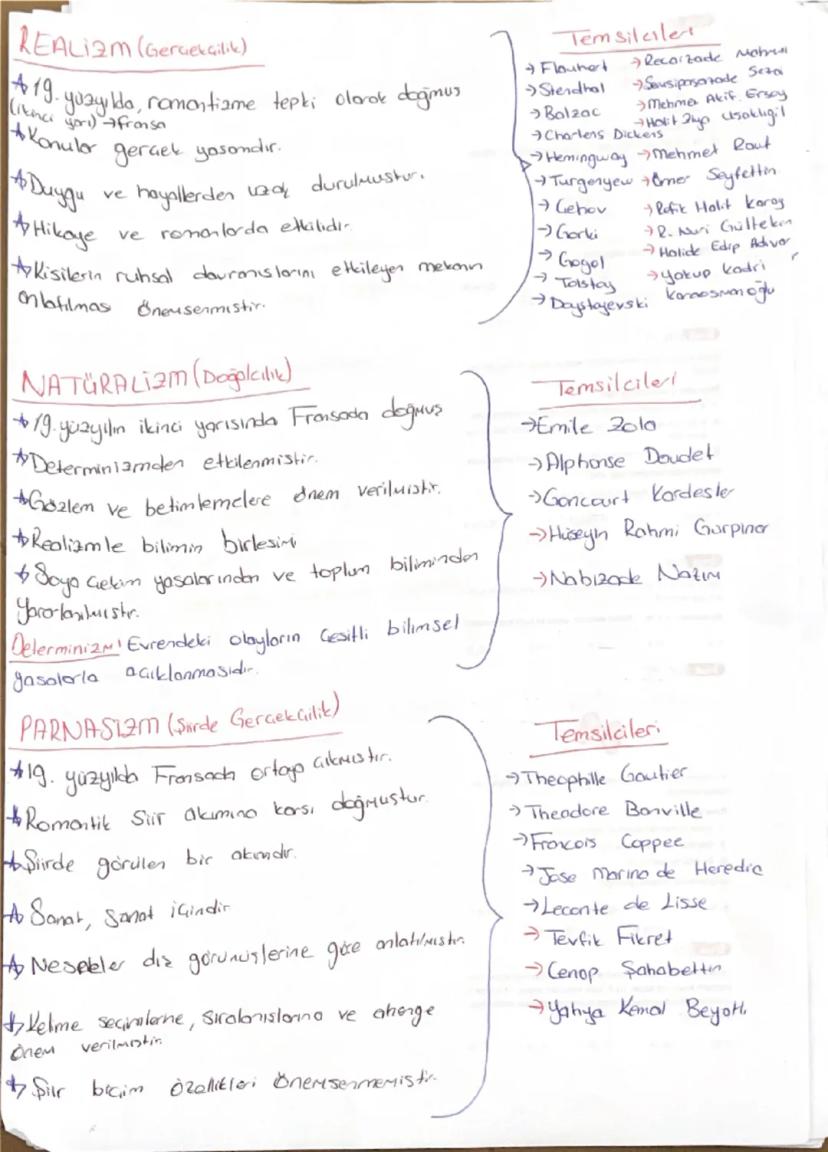 REALİZM (Gerçekçilik)
19. yüzyılda, romantizme tepki olarak doğmuş
(ikinci yarı) →fransa
Konular gerçek yaşamdır.
Duygu ve hayallerden uzak durulmuştur.
Hikaye ve romanlarda etkilidir.
Kişilerin ruhsal davranışlarını etkileyen mekanın
anlatılması önemsenmiştir.
Temsilcileri
→Flauhert →Recaizade Mahmut
→Stendhal →Samipaşazade Sezai
→Balzac →Mehmet Akif Ersoy
→Halit Ziya Uşaklıgil
→Charlens Dickens
→Hemingway →Mehmet Rauf
→Turgenyew →Ömer Seyfettin
→Çehov →Refik Halit Karay
→Gorki →R. Nuri Gültekin
→Gogol →Halide Edip Adıvar
→Tolstoy →Yakup Kadri
→Doystoyevski Karaosmanoğu
NATÜRALİZM (Doğalcılık)
19. yüzyılın ikinci yarısında Fransada doğmuş
Determinizmden etkilenmiştir.
Gözlem ve betimlemelere önem verilmiştir.
Realizmle bilimin birleşimi
Soya çekim yasalarından ve toplum biliminden
yararlanılmıştır.
Determinizm: Evrendeki olayların çeşitli bilimsel
yasalarla açıklanmasıdır.
Temsilcileri
→Emile Zola
→Alphonse Doudet
→Goncourt Kardeşler
→Hüseyin Rahmi Gürpınar
→Nabizade Nazım
PARNASİZM (Şiirde Gerçekçilik)
19. yüzyılda Fransada ortaya çıkmıştır.
Romantik şiir akımına karşı doğmuştur.
Şiirde görülen bir akımdır.
Sanat, sanat içindir
Nesneler dış görünüşlerine göre anlatılmıştır.
Kelime seçimlerine, sıralanışlarına ve ahenge
önem verilmiştir.
Şiir biçim özellikleri önemsenmemiştir.
Temsilcileri
→Theophille Gautier
→Theodore Banville
→Francois Coppee
→Jose Marino de Heredia
→Leconte de Lisse
→Tevfik Fikret
→Cenap Şahabettin
→Yahya Kemal Beyatlı